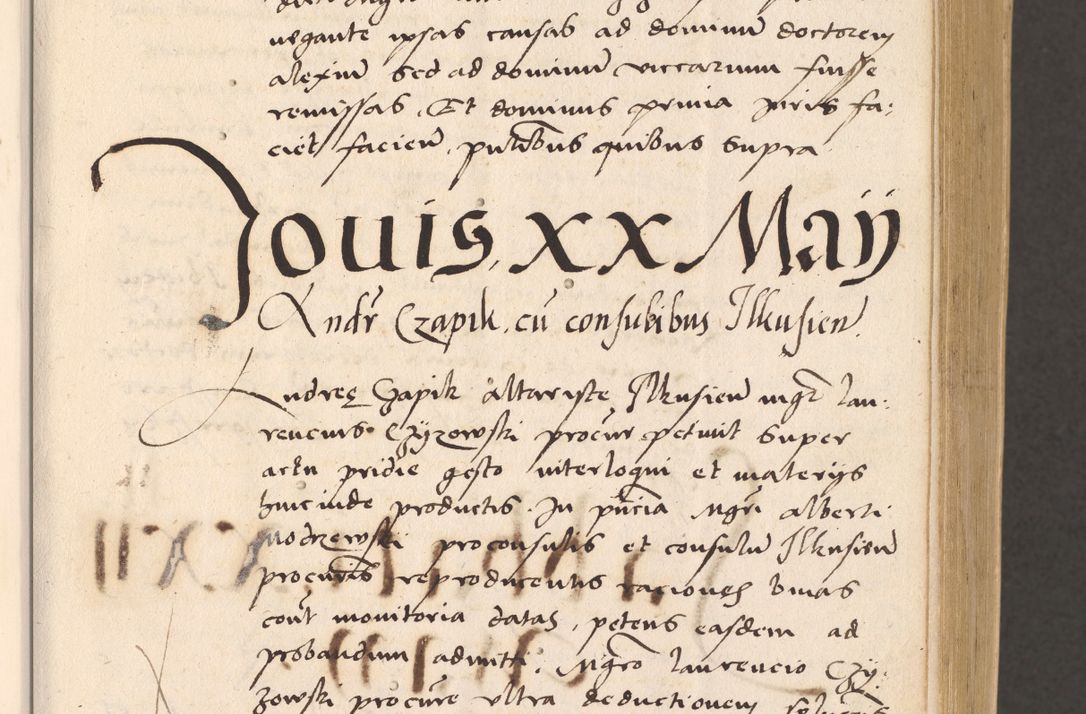 negante ipsas causas ad dominum doctorem
alexium sed ad dominum viccarium fuisse
remissas. Et dominus primia Juris fa:
ciet facien. pntibus quibus supra
Jouis. xx Maÿ
Andr Czapik. cu consulibus Ilkusien
Andreę Czapik altariste Ilkusien mgr lau:
rencius Czÿzowski procur petiuit super
actu pridie gesto interloqui et materijs
hincinde productis. In pncia Mgri alberti
Modrzewski proconsulis et consulu Ilkusien
procuris reproducentis raciones binas
cont monitoria datas, petens easdem ad
probandum admitti. Mgro laurencio Czÿ:
zowski procure vltra deductionem